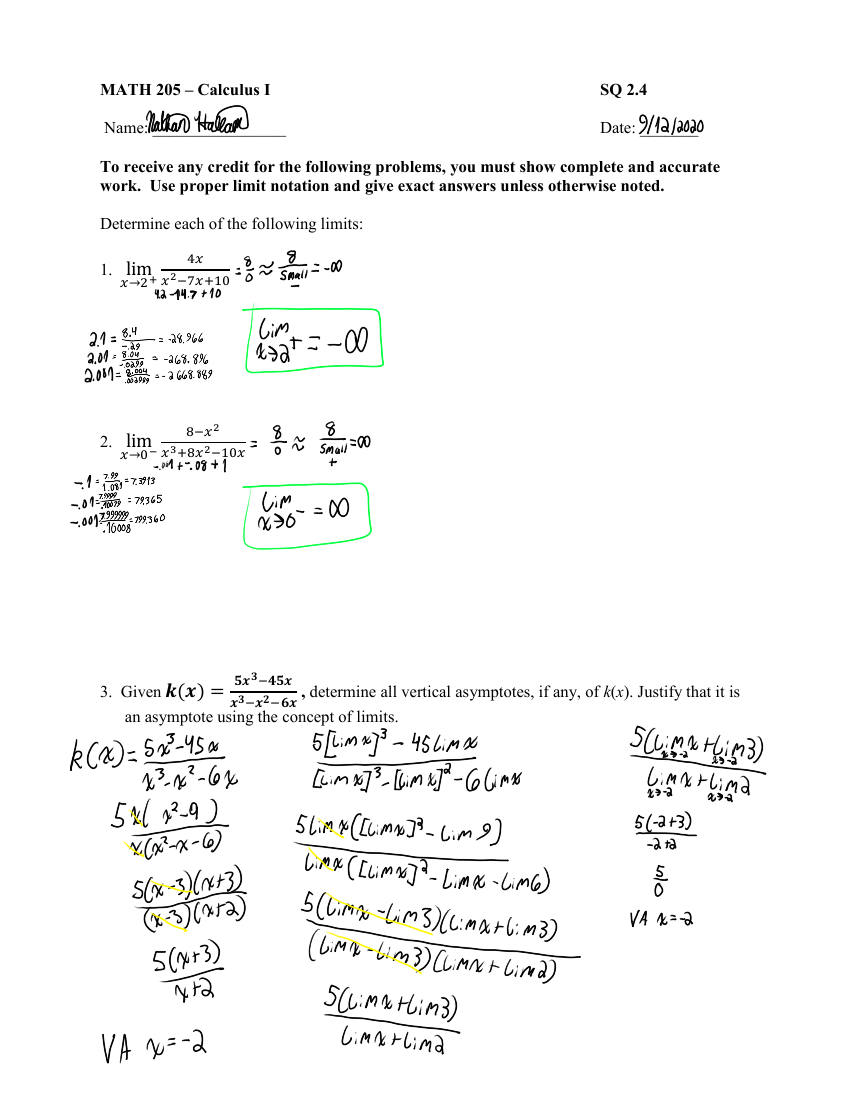 MATH 205 – Calculus I SQ 2.4
Name: Nathan Hallam Date: 9/12/2020
To receive any credit for the following problems, you must show complete and accurate
work. Use proper limit notation and give exact answers unless otherwise noted.
Determine each of the following limits:
1. lim x→2⁺ 4x/(x²−7x+10) = 8/0 ≈ 8/small − = -∞
4.2 -14.7 +10
2.1 = 8.4/-.29 = -28.966
2.01 = 8.04/-.0299 = -268.896
2.001 = 8.004/.002999 = -2668.889
lim x→2⁺ = -∞
2. lim x→0⁻ (8−x²)/(x³+8x²−10x) = 8/0 ≈ 8/small + = ∞
-.001 + -.08 + 1
-.1 = 7.99/1.081 = 7.3913
-.01 = 7.9999/.10079 = 79.365
-.001 = 7.999999/.10008 = 799.360
lim x→0⁻ = ∞
3. Given k(x) = (5x³−45x)/(x³−x²−6x), determine all vertical asymptotes, if any, of k(x). Justify that it is
an asymptote using the concept of limits.
k(x) = (5x³-45x)/(x³-x²-6x)
5x(x²-9)/x(x²-x-6)
5(x-3)(x+3)/(x-3)(x+2)
5(x+3)/x+2
VA x=-2
5[lim x]³ - 45 lim x/[lim x]³ - [lim x]² - 6 lim x
5 lim x([lim x]³ - lim 9)/lim x([lim x]² - lim x - lim 6)
5(lim x - lim 3)(lim x + lim 3)/(lim x - lim 3)(lim x + lim 2)
5(lim x + lim 3)/lim x + lim 2
5(lim x→-2 x + lim x→-2 3)/lim x→-2 x + lim x→-2 2
5(-2+3)/-2+2
5/0
VA x=-2